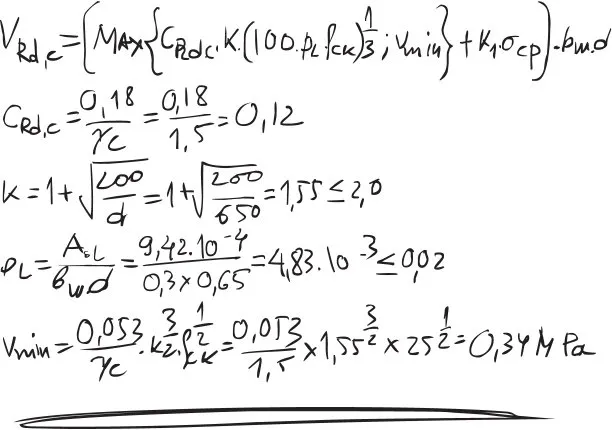 V_Rd,c = (MAX{C_Rd,c · K · (100 · ρ_L · f_ck)^1/3 ; V_min} + K_1 · σ_cp) · b_w · d
C_Rd,c = 0,18/γ_c = 0,18/1,5 = 0,12
K = 1 + √(200/d) = 1 + √(200/650) = 1,55 ≤ 2,0
ρ_L = A_sL/(b_w · d) = 9,42 · 10^-4/(0,3 × 0,65) = 4,83 · 10^-3 ≤ 0,02
V_min = 0,053/γ_c · K^3/2 · f_ck^1/2 = 0,053/1,5 × 1,55^3/2 × 25^1/2 = 0,34 MPa